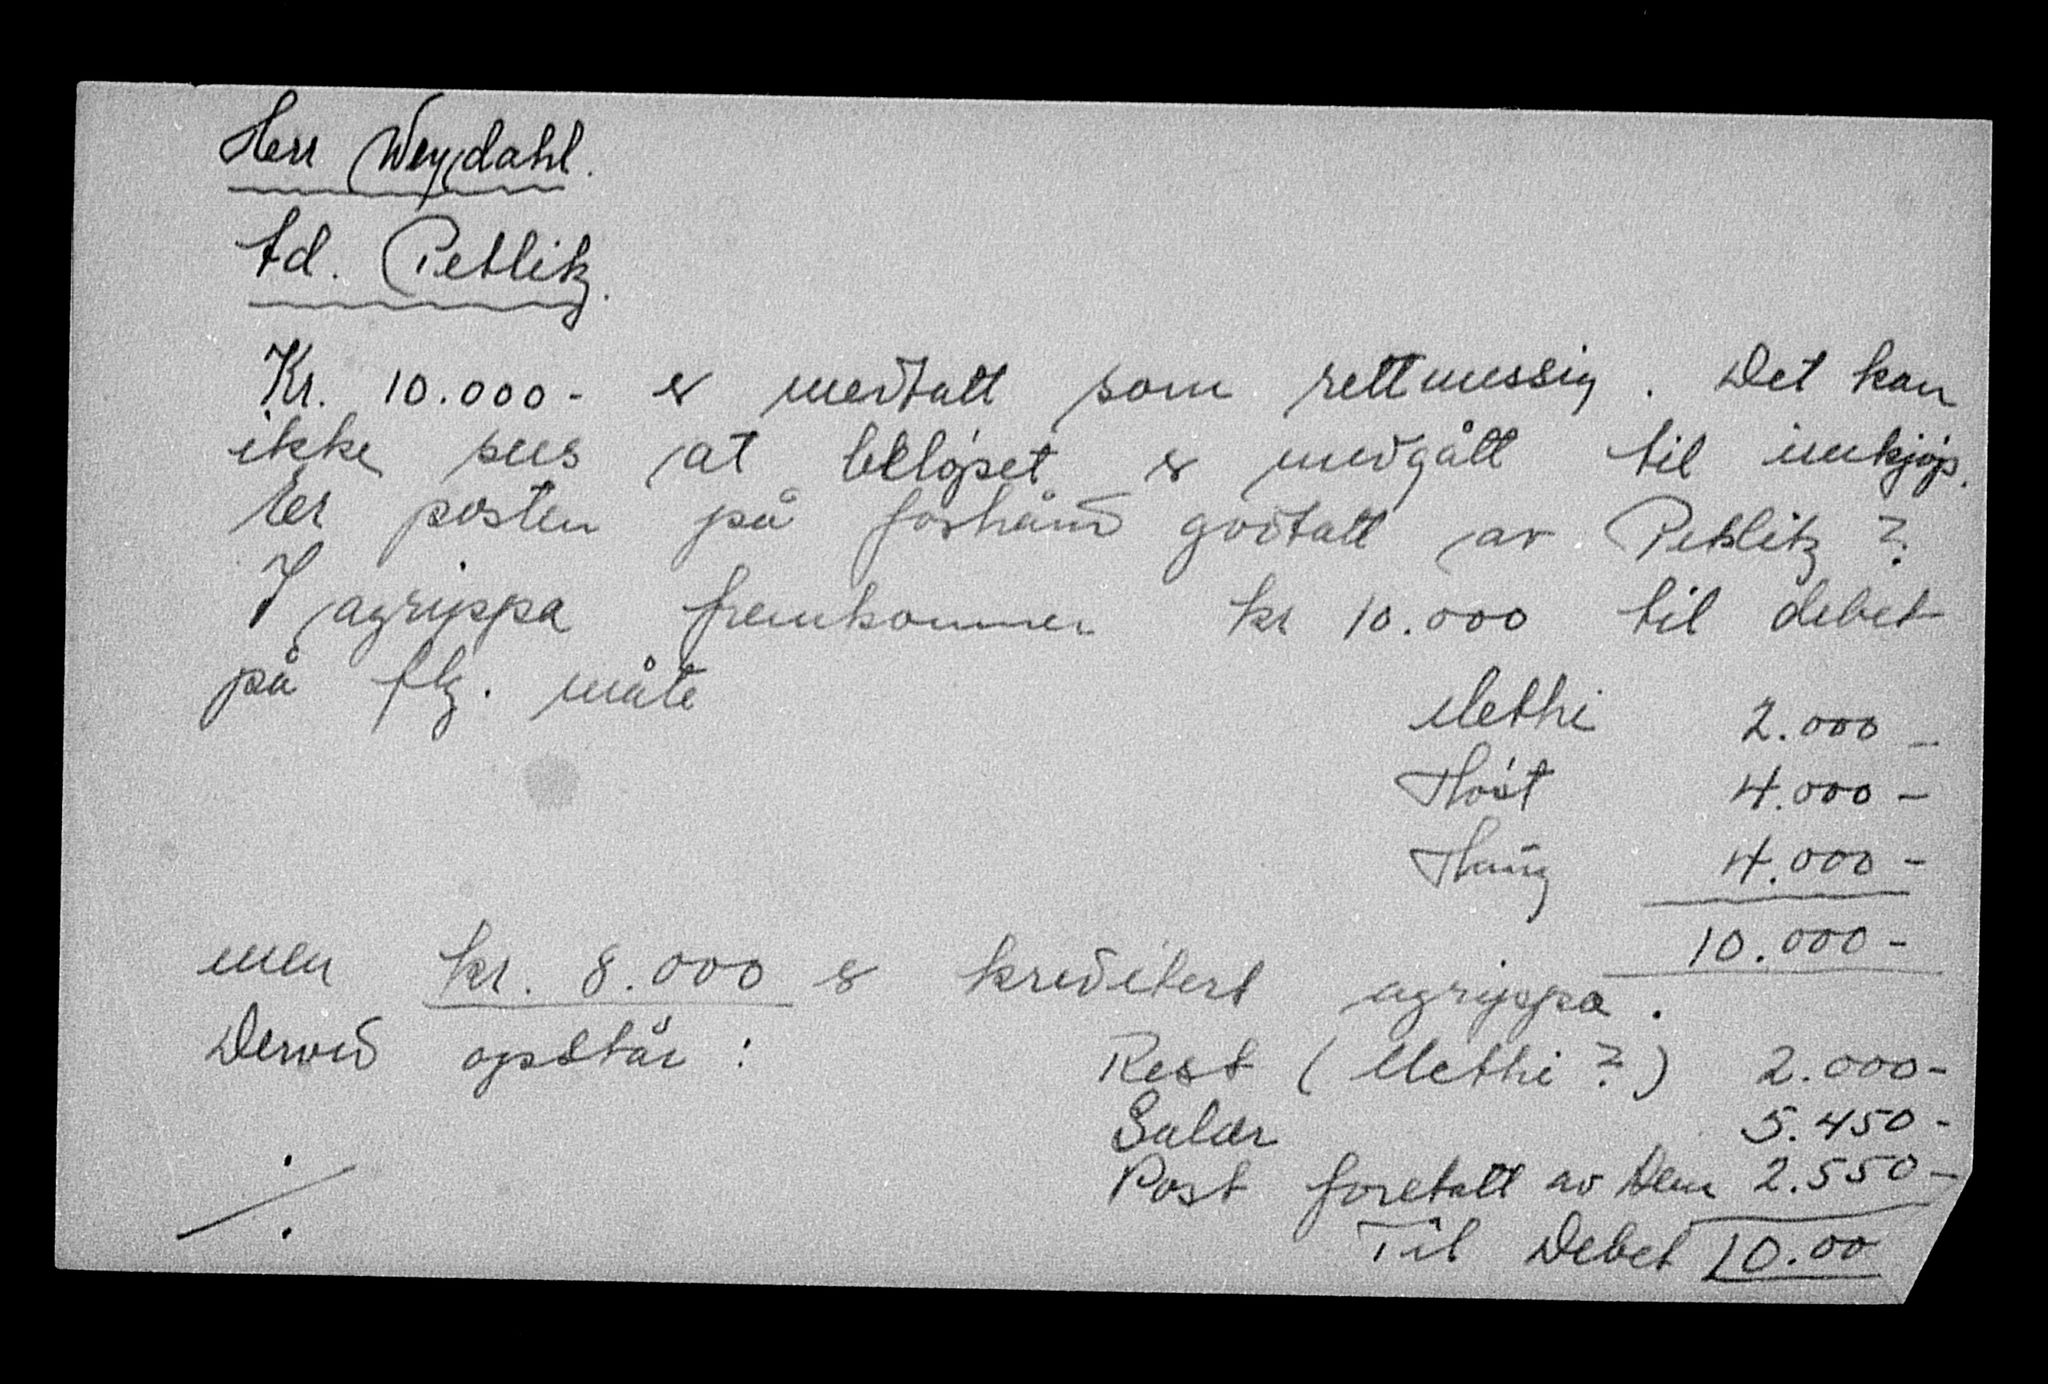 Herr Weydahl.
td. Petlitz.
Kr. 10.000- er medtatt som rettmessig. Det kan
ikke sees at beløpet er medgått til innkjøp.
Er posten på forhånd godtatt av Petlitz?
I agrippa fremkommer kr 10.000 til debet
på flg. måte
Methi 2.000-
Høst 4.000-
Haug 4.000-
10.000-
men kr. 8.000 er kreditert agrippa.
Derved opstår:
Rest (Methi?) 2.000-
Salær 5.450-
Post foretatt av Dem 2.550-
Til Debet 10.00
./.